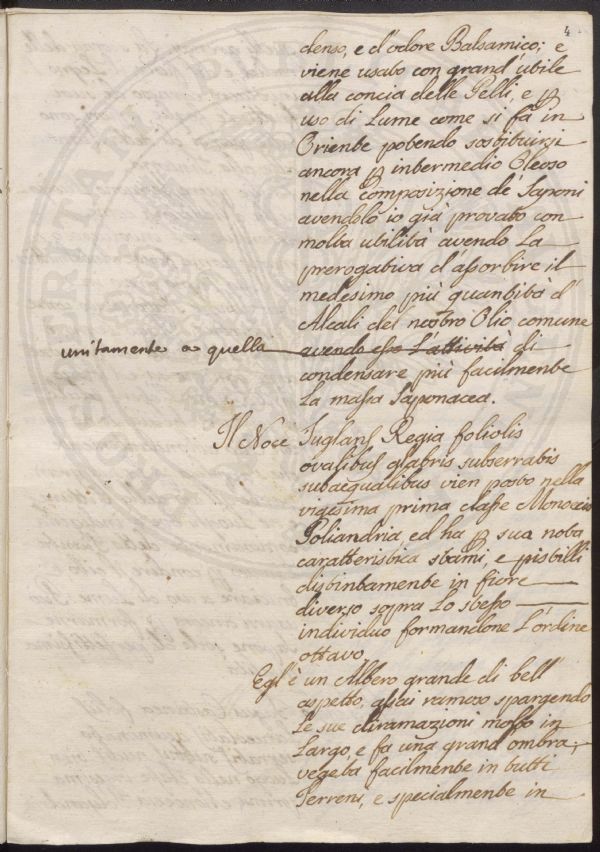 4
denso, e d'odore Balsamico; e
viene usato con grand'utile
alla concia delle Pelli, e p
uso di Lume come si fà in
Oriente potendo sostituirsi
ancora p intermedio Oleoso
nella composizione de Saponi
avendolo io già provato con
molta utilità avendo La
prerogativa d'assorbire il
medesimo più quantità d'
Alcali del nostro Olio comune
unitamente a quella avendo esso L'attività di
condensare più facilmente
La massa Saponacea.
Il Noce Juglans Regia foliolis
ovalibus glabris subserratis
subaequalibus vien posto nella
vigesima prima classe Monoecia
Poliandria, ed ha p sua nota
caratteristica stami, e pistilli
distintamente in fiore
diverso sopra Lo stesso
individuo formandone L'ordine
ottavo
Egl'è un Albero grande di bell'
aspetto, assai ramoso spargendo
Le sue diramazioni molto in
Largo, e fa una grand ombra,
vegeta facilmente in tutti
Terreni, e specialmente in